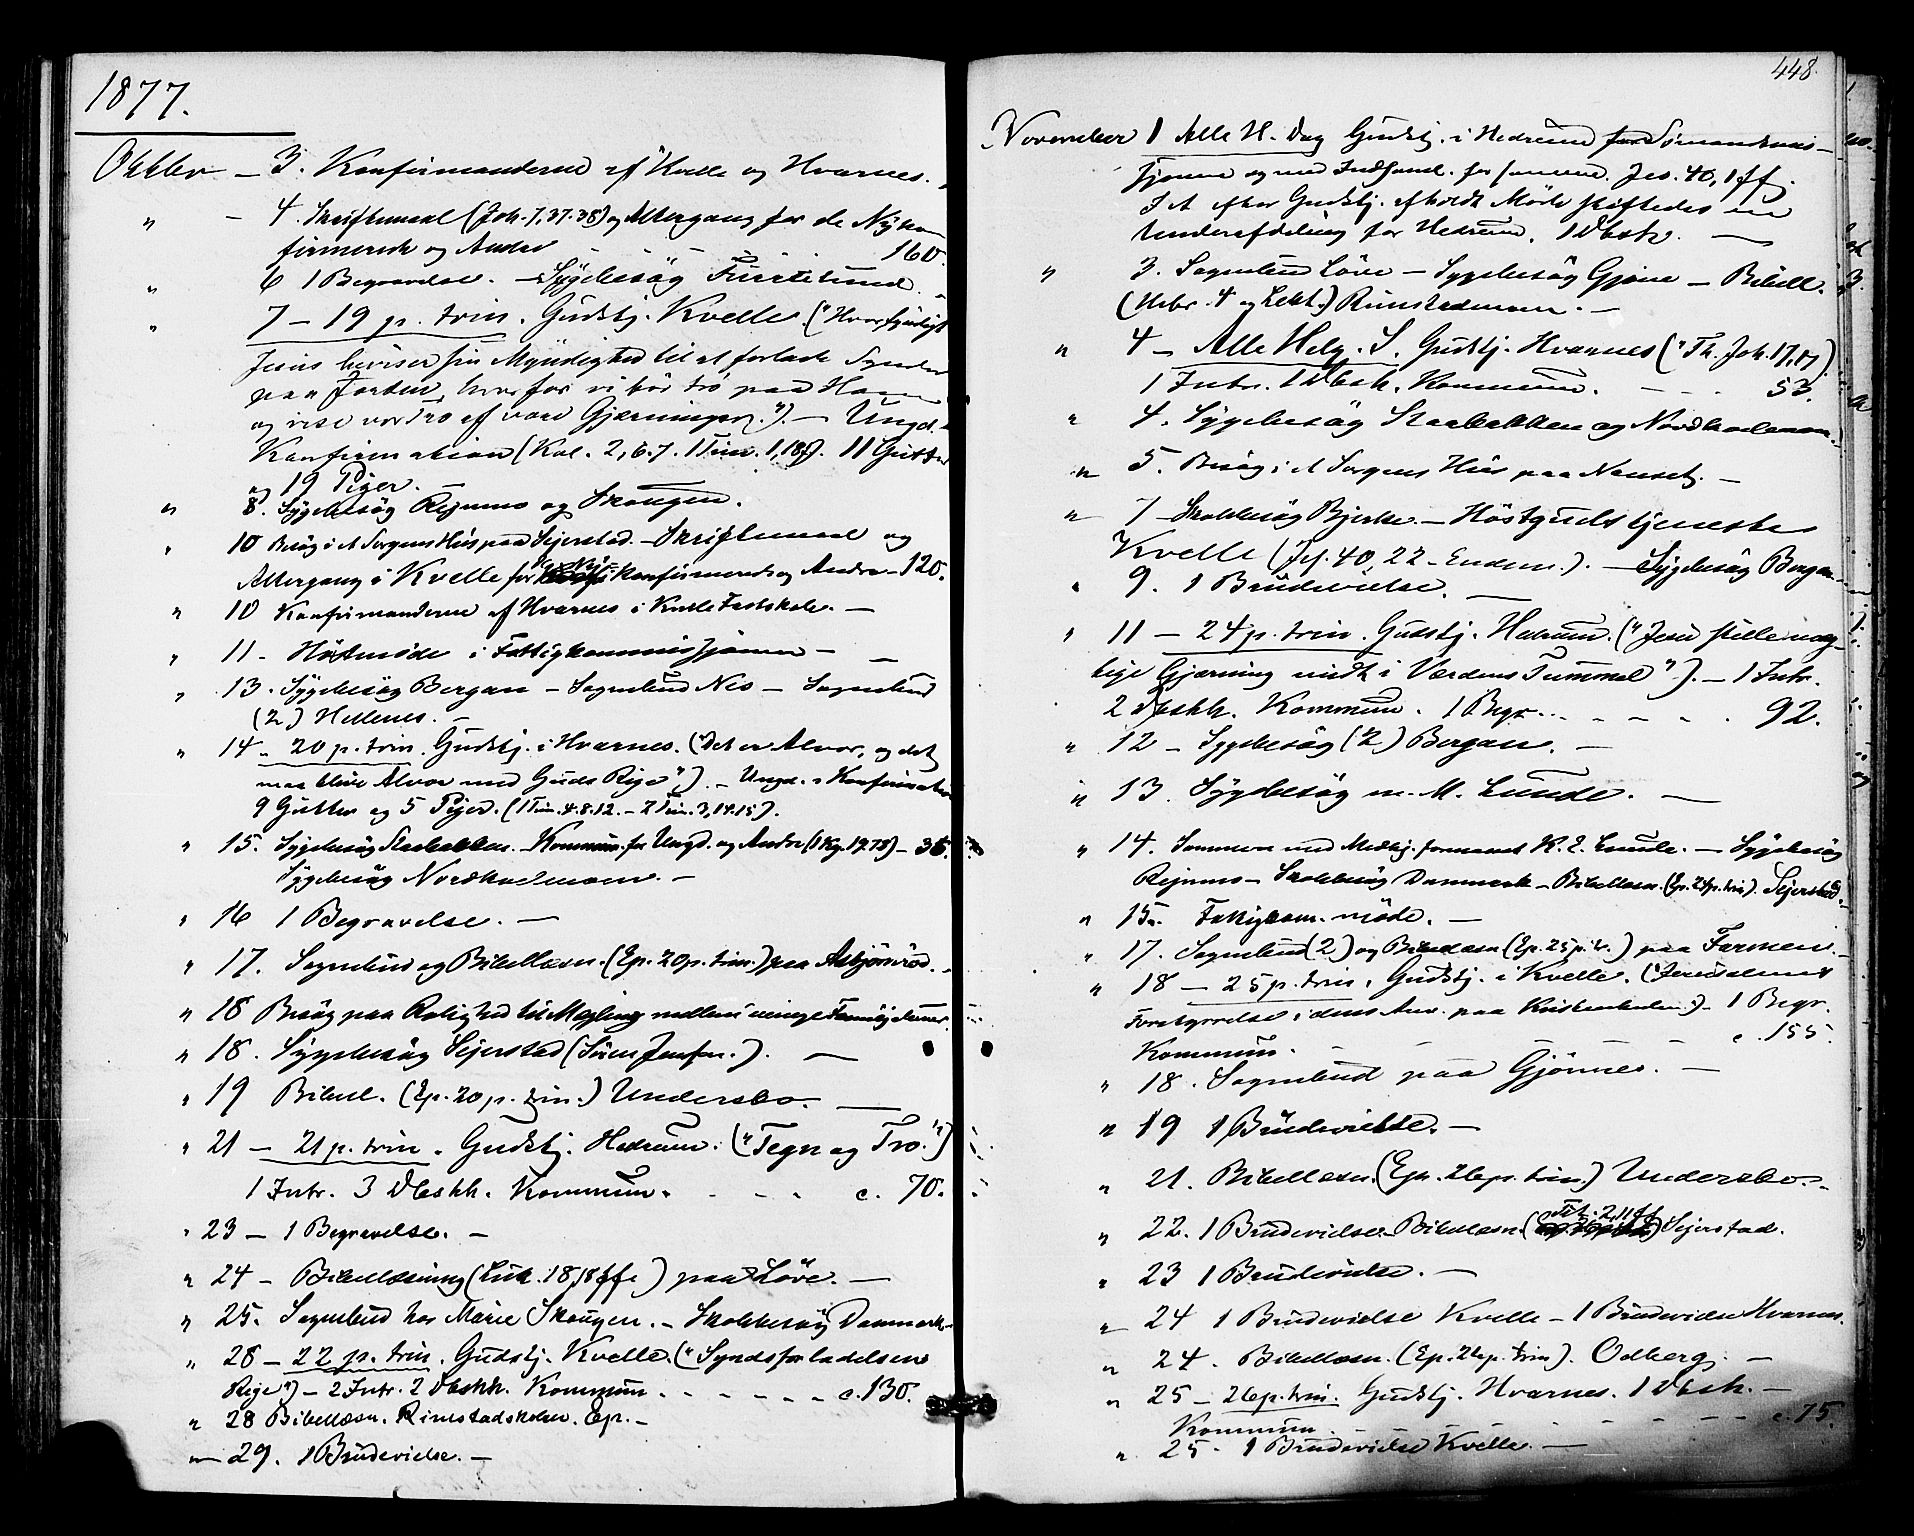 1877.
Oktbr – 3. Konfirmanderne af Kvelle og Hvarnes.
" – 4. Skriftemaal (Joh. 7, 37-38) og Altergang for de Nykon
firmerede og Andre – – 160.
" 6 1 Begravelse. – Sygebesøg
" 7 – 19 p. trin. Gudstj. Kvelle. ("Hvor
Jesus beviser sin Myndighed til at forlade Synder
paa Jorden, hvorfor vi bør tro paa Ham
og vise vor Tro af vore Gjerninger."). – Ungd.
Konfirmation (Kol. 2, 6.7. 1 Tim. 1, 18f). 11 Gutter
og 19 Piger.
" 8. Sygebesøg Rejmus og Skougen.
" 10 Besøg i et Sorgens Hus paa Sejerstad. – Skriftemaal og
Altergang i Kvelle for Ny- konfirmerede og Andre – 120.
" 10 Konfirmanderne af Hvarnes i Kvelle Fastskole. –
" 11 – Høstmøde i Fattigkommissjonen – –
" 13. Sygebesøg Bergan – Sognebud Nes – Sognebud
(2) Hellenes. –
" 14 – 20 p. trin. Gudstj. i Hvarnes. ("Det er Alvor, og det
maa blive Alvor med Guds Rige"). – Ungd. Konfirmation
9 Gutter og 5 Piger. (1 Tim. 4. 8. 12. – 2 Tim. 3, 14. 15).
" 15. Sygebesøg Staabakken. – Kommun. for Ungd. og Andre (1 Kg. 19. 7 8) – 36.
Sygebesøg Nordkademoen. –
" 16 1 Begravelse. –
" 17. Sognebud og Bibellæsn. (Ep. 20 p. trin.) paa Asbjønrød. –
" 18 Besøg paa Rolighed til Megling mellem uenige
" 18. Sygebesøg Sejerstad (Sven Jensen.). –
" 19 Bibell. (Ep. 20 p. trin.) Undersbo. –
" 21 – 21 p. trin. Gudstj. Hedrum. ("Tegn og Tro.")
1 Intr. 3 Dbskh. Kommun. – – – c. 70.
" 23 – 1 Begravelse. –
" 24 – Bibellæsning (Luk. 18, 18 ff.) paa Løve. –
" 25. Sognebud hos Marie Skougen. – Skolebesøg Danmark
" 28 – 22 p. trin. Gudstj. Kvelle. ("Syndsforladelsens
Rige") – 2 Intr. 2 Dbskh. Kommun. – – – c. 130.
" 28 Bibellæsn. Rimstadskolen. Ep. –
" 29. 1 Brudevielse. –
448.
November 1 Alle H. Dag Gudstj. i Hedrum for Sømandsmis-
sjonen og med Indsaml. for samme. Jes. 40, 1 ff.
I et efter Gudstj. afholdt Møde stiftedes en
Underafdeling for Hedrum. 1 Dbsk. –
" 3. Sognebud Løve – Sygebesøg Gjøne – Bibell.
(Hebr. 4 og Lekt.) Rimstadmoen. –
" 4 – Alle Helg. S. Gudstj. Hvarnes ("Th. Joh. 17, 17)
1 Intr. 1 Dbsk. Kommun. – – – 53.
" 4. Sygebesøg Staabakken og Nordkademoen.
" 5. Besøg i et Sorgens Hus paa Nanset. –
" 7 – Skolebesøg Bjerke. – Høstgudstjeneste
Kvelle (Jes. 40, 22 – Enden.). – Sygebesøg Bergan –
" 9. 1 Brudevielse. –
" 11 – 24 p. trin. Gudstj. Hedrum. ("Jesu stille mæg-
tige Gjerning midt i Verdens Tummel"). – 1 Intr.
2 Dbskh. Kommun. 1 Begr. – – – 92.
" 12 – Sygebesøg (2) Bergan. –
" 13. Sygebesøg m. M. Lunde. –
" 14. Sammen med Medhj. formand K. E. Lunde. – Sygebesøg
Rejmus – Skolebesøg Danmark – Bibellæsn. (Ep. 24 p. trin). Sejerstad.
" 15. Fattigkom. møde. –
" 17. Sognebud (2) og Bibellæsn (Ep. 25 p. tr.) paa Farmen. –
" 18 – 25 p. trin. Gudstj. i Kvelle. ("Jerusalems
Forstyrrelse i dens Anv. paa Kristenheden") – 1 Begr.
Kommun. – – – c. 155.
" 18. Sognebud paa Gjønnes. –
" 19 1 Brudevielse. –
" 21. Bibellæsn. (Ep. 26 p. trin.) Undersbo. –
" 22. 1 Brudevielse. Bibellæsn. (Tit. 2, 11 ff) Sejerstad.
" 23 1 Brudevielse. –
" 24 1 Brudevielse Kvelle – 1 Brudevielse Hvarnes.
" 24. Bibellæsn. (Ep. 26 p. trin). Odberg. –
" 25 – 26 p. trin. Gudstj. Hvarnes. 1 Dbsk. –
Kommun. – – – c. 75.
" 25 – 1 Brudevielse Kvelle. –